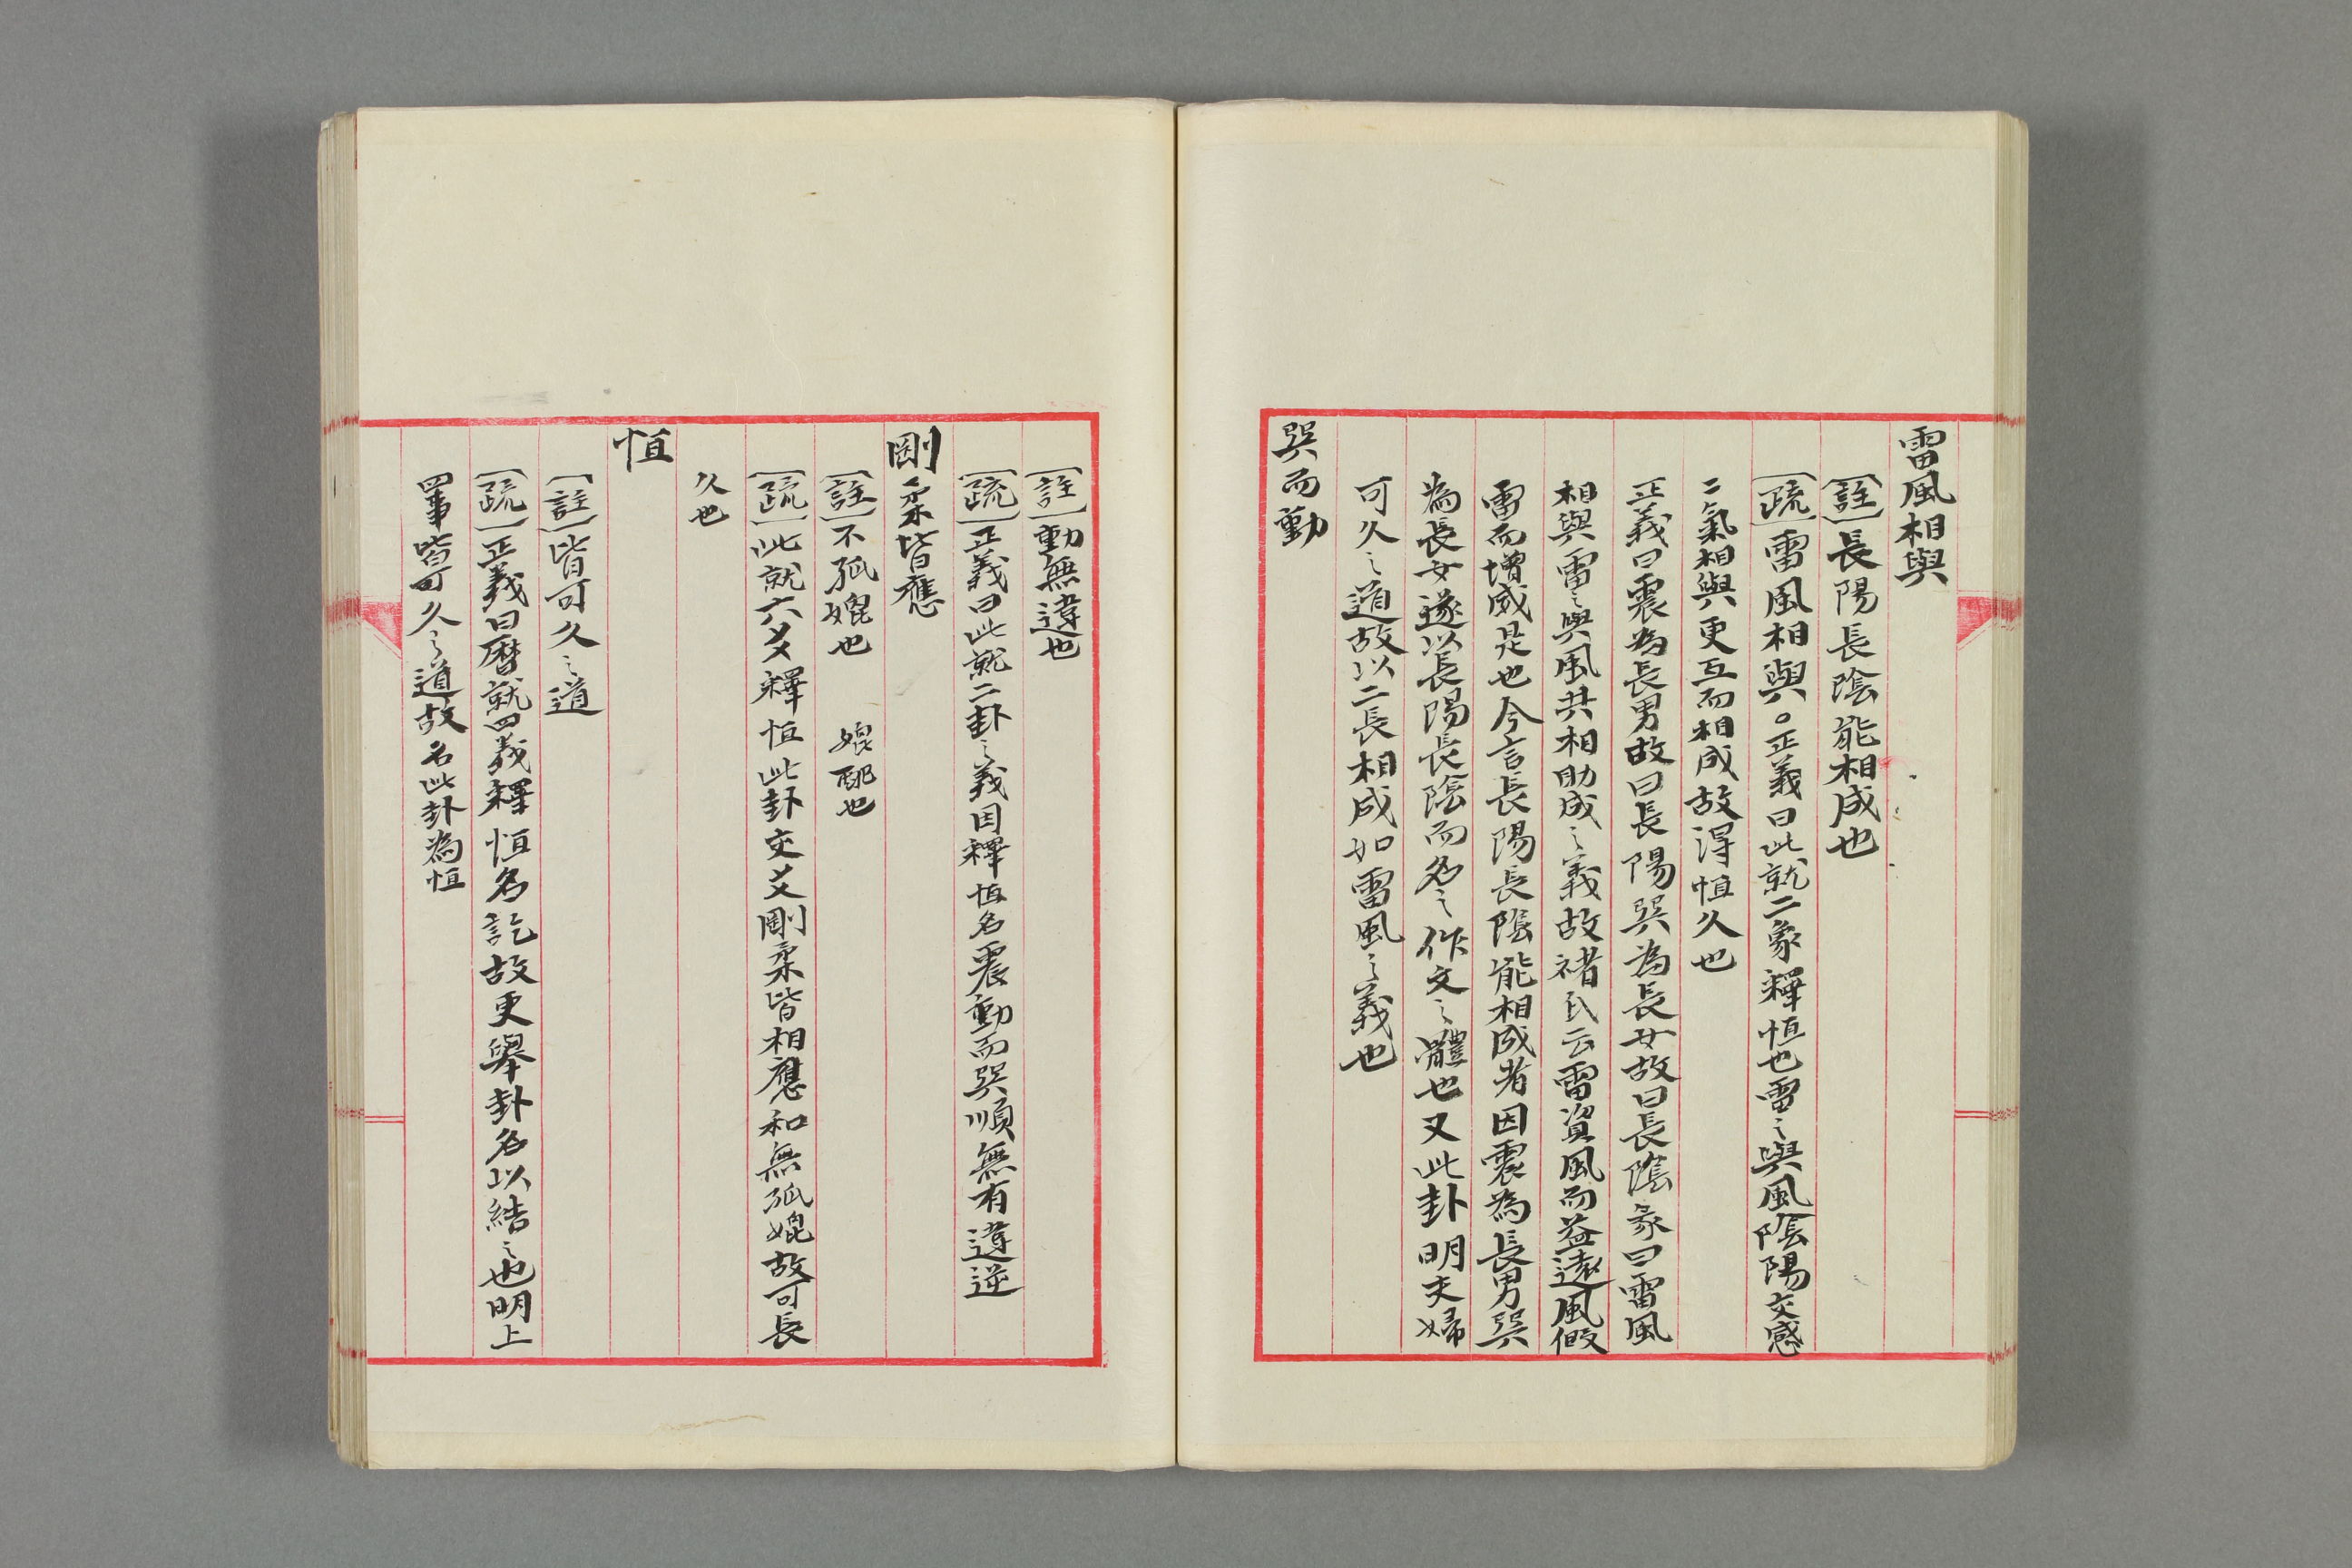 雷風相與
〔註〕長陽長陰能相成也
〔疏〕雷風相與。正義曰此就二象釋恒也雷之與風陰陽交感
二氣相與更互而相成故得恒久也
正義曰震為長男故曰長陽巽為長女故曰長陰彖曰雷風
相與雷之與風共相助成之義故褚氏云雷資風而益遠風假
雷而增威是也今言長陽長陰能相成者因震為長男巽
為長女遂以長陽長陰而名之作文之體也又此卦明夫婦
可久之道故以二長相成如雷風之義也
巽而動
〔註〕動無違也
〔疏〕正義曰此就二卦之義因釋恒名震動而巽順無有違逆
剛柔皆應
〔註〕不孤媲也 媲配也
〔疏〕此就六爻釋恒此卦交爻剛柔皆相應和無孤媲故可長
久也
恒
〔註〕皆可久之道
〔疏〕正義曰曆就四義釋恒名訖故更舉卦名以結之也明上
四事皆可久之道故名此卦為恒